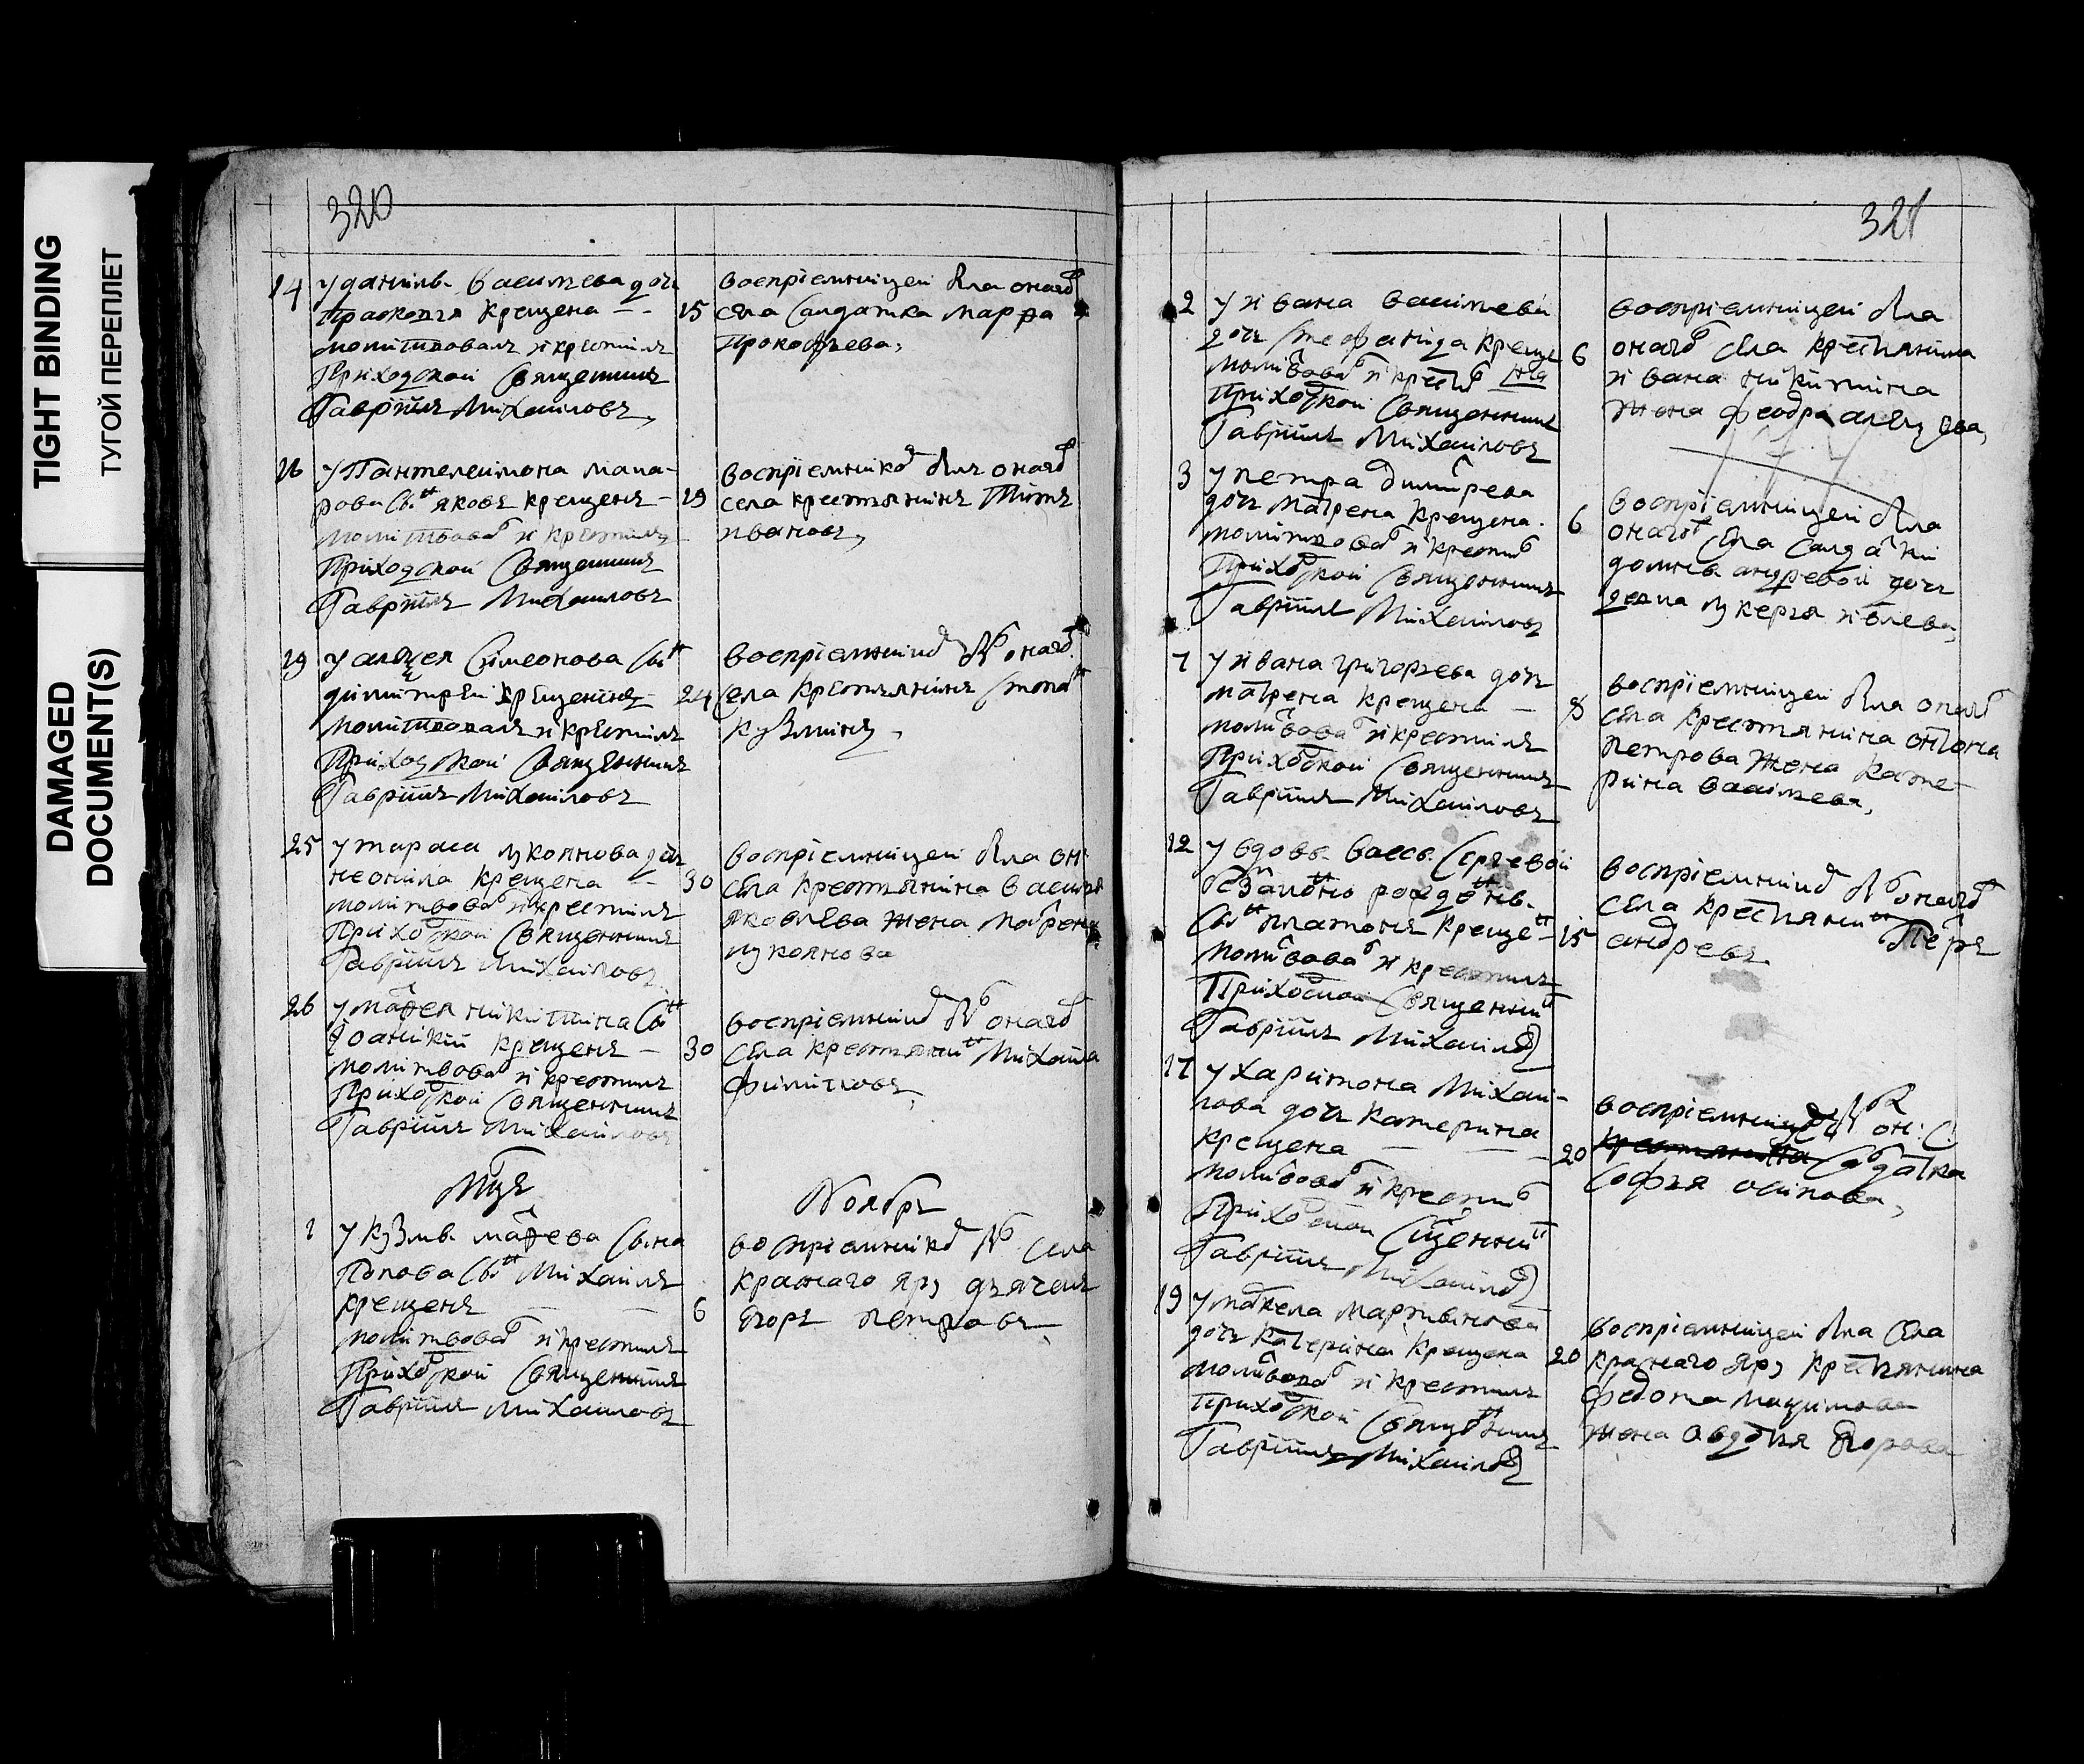 TIGHT BINDING
ТУГОЙ ПЕРЕПЛЕТ
DAMAGED
DOCUMENT(S)
320
14 У данилы василева дочь
Прасковия крещена
молитвовалъ и крестилъ
Приходской Священникъ
Гаврïилъ Михаиловъ
воспрïемницеи была оного
15 села Салдатка марфа
Прокофьева,
16 У Пантелеимона мака-
рова сынъ яковъ крещенъ
молитвовалъ и крестилъ
Приходской Священникъ
Гаврïилъ Михаиловъ
воспрïемникомъ былъ оного
19 села крестьянинъ Титъ
ивановъ,
19 У алексея Симеонова сынъ
димитреи крещенъ
молитвовалъ и крестилъ
Приходской Священникъ
Гаврïилъ Михаиловъ
воспрïемникъ былъ оного
24 села крестьянинъ
кузминъ,
25 У тараса лукоянова дочь
неонила крещена
молитвовалъ и крестилъ
Приходской Священникъ
Гаврïилъ Михаиловъ
воспрïемницеи была он:
30 села крестьянина василья
яковлева жена матрена
лукоянова
26 У матфея никитина сынъ
їоаникии крещенъ
молитвовалъ и крестилъ
Приходской Священникъ
Гаврïилъ Михаиловъ
воспрïемникъ былъ оного
30 села крестьянинъ Михаила
филиповъ,
Мцъ
Ноябрь
1 У кузмы матфева сына
Попова сынъ Михаилъ
крещенъ
молитвовалъ и крестилъ
Приходской Священникъ
Гаврïилъ Михаиловъ
воспрïемникомъ былъ села
краснаго яру дьячекъ
6 Егоръ петровъ
321
2 У ивана василева
дочь стефанида креще
молитвовалъ и крестилъ на
Приходской Священникъ
Гаврïилъ Михаиловъ
воспрïемницеи была
6 оного села крестьянина
ивана никитина
жена феодра алексева,
3 У петра димитрева
дочь матрена крещена
молитвовалъ и крестилъ
Приходской Священникъ
Гаврïилъ Михаиловъ
воспрïемницеи была
6 оного села салдатки
домны андревои дочь
девка лукерья
7 У ивана григорьева дочь
матрена крещена
молитвовалъ и крестилъ
Приходской Священникъ
Гаврïилъ Михаиловъ
воспрïемницеи была оного
8 села крестьянина антона
петрова жена кате-
рина василева,
12 У вдовы вассы Сергевои
беззаконно рожденъ
сынъ платонъ крещенъ
молитвовалъ и крестилъ
Приходской Священникъ
Гаврïилъ Михаиловъ
воспрïемникъ былъ оного
села крестьянинъ Петръ
15 андревъ
17 У харитона Михаи-
лова дочь катерина
крещена
молитвовалъ и крестилъ
Приходской Сщенникъ
Гаврïилъ Михаиловъ
воспрïемницеи была он: с
20 крестьянина салдатка
софья осипова,
19 У мартынова
дочь катерина крещена
молитвовалъ и крестилъ
Приходской Священникъ
Гаврïилъ Михаиловъ
воспрïемницеи была села
20 краснаго яру крестьянина
федота максимова
жена авдотья Егорова